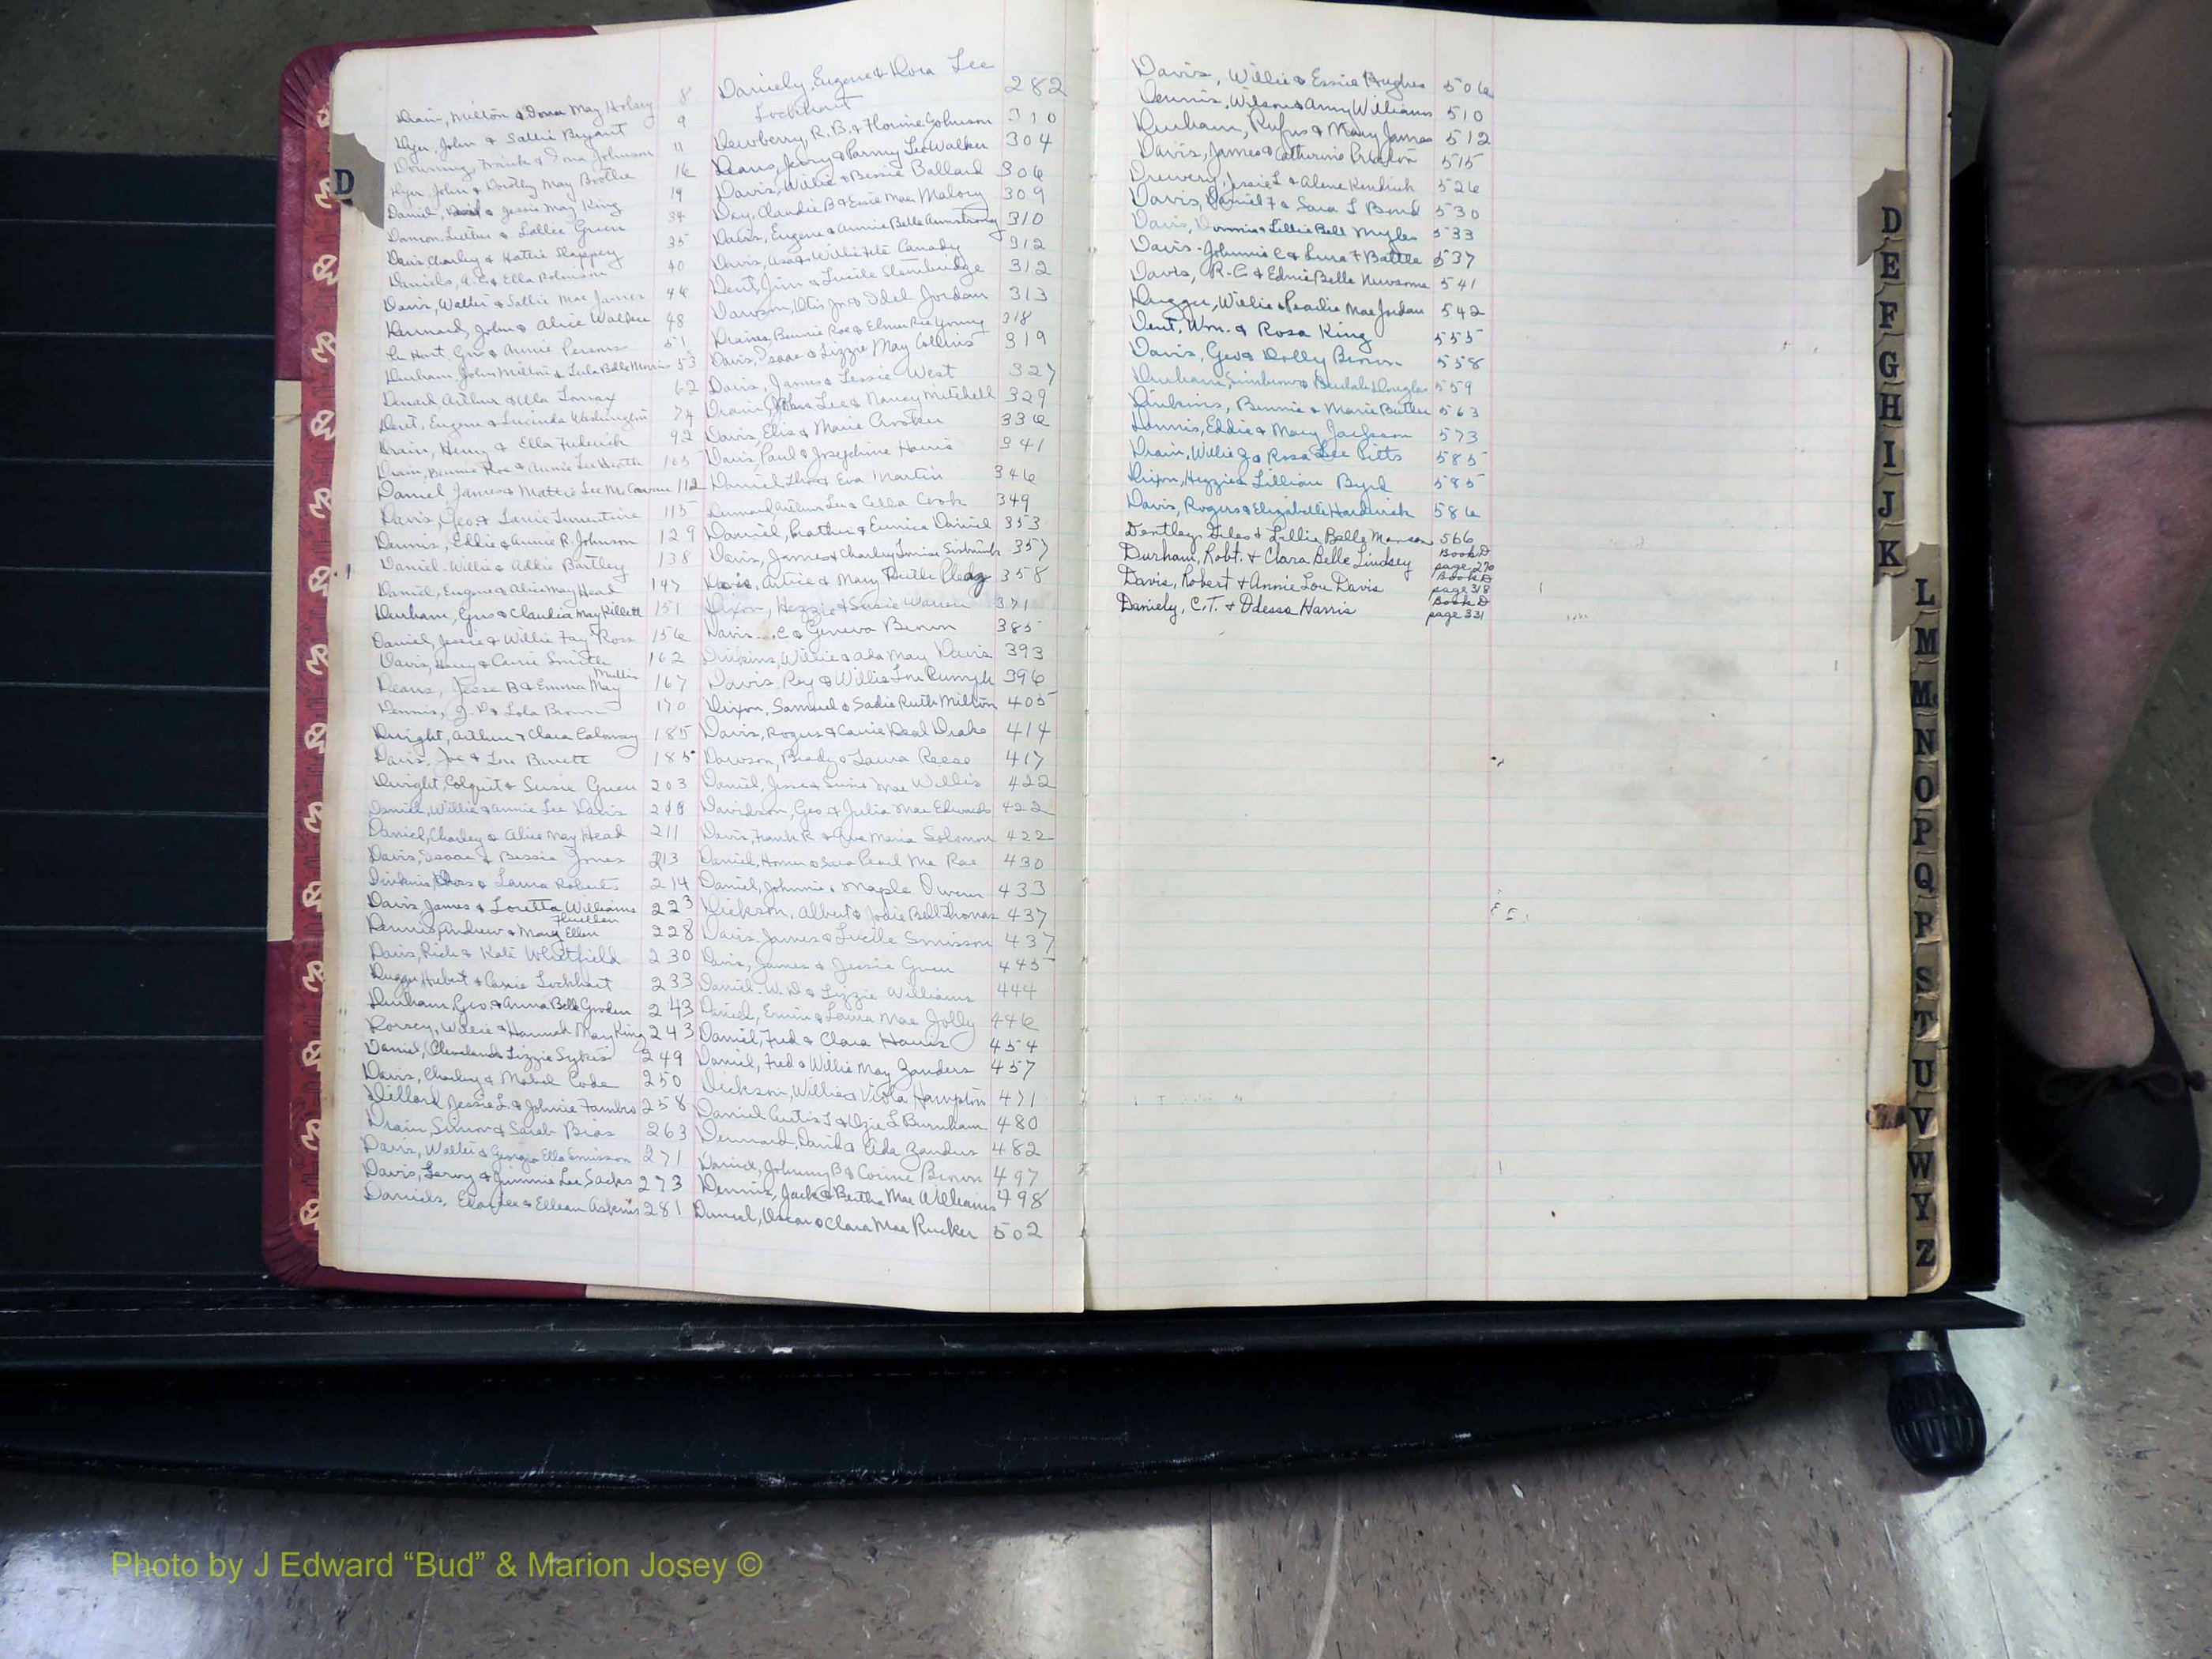 D
Drain, Milton & Dona May Holsey 8
Dyer, John & Sallie Bryant 9
Downing, Frank & Iona Johnson 11
Dyer, John & Dorothy May Boothe 16
Daniel, & Jessie May King 19
Damon, Luther & Lallie Green 34
Davis, Charley & Hattie Slappey 35
Daniels, A.C. & Ella Robinson 40
Davis, Walter & Sallie Mae James 46
Dennard, John & Alice Walker 48
De Hart, Geo & Annie Persons 51
Durham, John Milton & Lula Belle Morris 53
Denard, Arthur & Ella Lomax 62
Dent, Eugene & Lucinda Washington 74
Drain, Henry & Ella Frederick 92
Drain, Bennie Roe & Annie Lee Heath 105
Daniel, James & Mattie Lee McCowan 112
Davis, Geo. & Janie Turrentine 115
Dennis, Eddie & Annie R. Johnson 129
Daniel, Willie & Addie Bartley 138
Daniel, Eugene & Alice May Head 147
Durham, Gus & Claudia May Killett 151
Daniel, Jessie & Willie Fay Ross 156
Davis, Harry & Carrie Smith 162
Deans, Jesse B & Emma May Mullis 167
Dennis, J.D & Lola Brown 170
Dwight, Arthur & Clara Caloway 185
Davis, Joe & Lou Barrett 185
Dwight, Colquit & Susie Green 203
Daniel, Willie & Annie Lee Davis 210
Daniel, Charley & Alice May Head 211
Davis, Isaac & Bessie Jones 213
Dinkins, & Laura Roberts 214
Davis, James & Loretta Williams 223
Dennis, Andrew & Mary Ellen Fluellen 228
Davis, Rich & Kate Whitfield 230
Dugger, Hubert & Cassie Lockhart 233
Durham, Geo & Anna Belle Gooden 243
Dorsey, Willie & Hannah May King 243
Daniel, Cleveland & Lizzie Sykes 249
Davis, Charley & Mabel Code 250
Dillard, Jessie L. & Johnie Fambro 258
Drain, Simon & Sarah Bias 263
Davis, Walter & Georgia Ella Smisson 271
Davis, Leroy & Jimmie Lee Sacks 273
Daniels, & Ellean Askins 281
Daniely, Eugene & Dora Lee Lockhart 282
Dewberry, R.B. & Florine Johnson 310
Deans, Jerry & Parmy Lee Walker 304
Davis, Willie & Bessie Ballard 306
Day, Claudie B & Essie Mae Malory 309
Davis, Eugene & Annie Belle Armstrong 310
Davis, Asa & Willie Canady 312
Dent, Jim & Lucile Stembridge 312
Dawson, Otis Jr. & Idel Jordan 313
Draine, Bennie Roe & Elmer Rie Young 318
Davis, Isaac & Lizzie May Collins 319
Davis, James & Lessie West 327
Drain, John Lee & Nancy Mitchell 329
Davis, Elie & Marie Crocker 336
Davis, Paul & Josephine Harris 341
Daniel, & Eva Martin 346
Dennard, Arthur Lee & Cella Cook 349
Daniel, Prather & Eunice Daniel 353
Davis, James & Charley Louise 357
Davis, Artie & Mary Ruth Pledg 358
Dixon, Hezzie & Susie Warren 371
Davis, C & Geneva Brown 385
Dinkins, Willie & Ada May Davis 393
Davis, Roy & Willie Lou Rumph 396
Dixon, Samuel & Sadie Ruth Milton 405
Davis, Rogers & Carrie Deal Drake 414
Dawson, Brady & Laura Reese 417
Daniel, Jesse & Susie Mae Willis 422
Davidson, Geo & Julia Mae Edwards 422
Davis, Frank R & Eva Maria Solomon 422
Daniel, Homer & Sara Pearl Mc Rae 430
Daniel, Johnnie & Maple Owens 433
Dickson, Albert & Jodie Bell Thomas 437
Davis, James & Lucile Smisson 437
Davis, James & Jessie Green 445
Daniel, W.D & Lizzie Williams 444
Daniel, Ernie & Laura Mae Jolly 446
Daniel, Fred & Clara Harris 454
Daniel, Fred & Willie May Zanders 457
Dickson, Willie & Viola Hampton 471
Daniel, Curtis L & Ozie L Burnham 480
Dennard, David & Eida Zanders 482
Daniel, Johnny B & Corine Brown 497
Dennis, Jack & Bertha Mae Williams 498
Daniel, Oscar & Clara Mae Rucker 502
Davis, Willie & Essie Hughes 506
Dennis, Wilson & Amy Williams 510
Durham, Rufus & Mary James 512
Davis, James & Catherine Preston 515
Drewery, Jessie L & Alene Kendrick 526
Davis, Daniel F & Sara L Bond 530
Davis, Donnie & Lillie Bell Myles 533
Davis, Johnnie C & Lura F Battle 537
Davis, R.C & Edna Belle Newsome 541
Dugger, Willie & Pearlie Mae Jordan 542
Dent, Wm. & Rosa King 555
Davis, Geo & Dolly Brown 558
Durham, & Beulah Douglas 559
Dinkins, Bennie & Marie Butler 563
Dennis, Eddie & Mary Jackson 573
Drain, Willie J & Rosa Lee Pitts 585
Dixon, Hezzie & Lillian Byrd 585
Davis, Rogers & Elizabeth Hardwick 586
Dentley, Giles & Lillie Belle Manson 566
Durham, Robt. & Clara Belle Lindsey Book D page 270
Davis, Robert & Annie Lou Davis Book D page 318
Daniely, C.T. & Odessa Harris Book D page 331
D
E
F
G
H
I
J
K
L
M
Mc
N
O
P
Q
R
S
T
U
V
W
Y
Z
Photo by J Edward “Bud” & Marion Josey ©